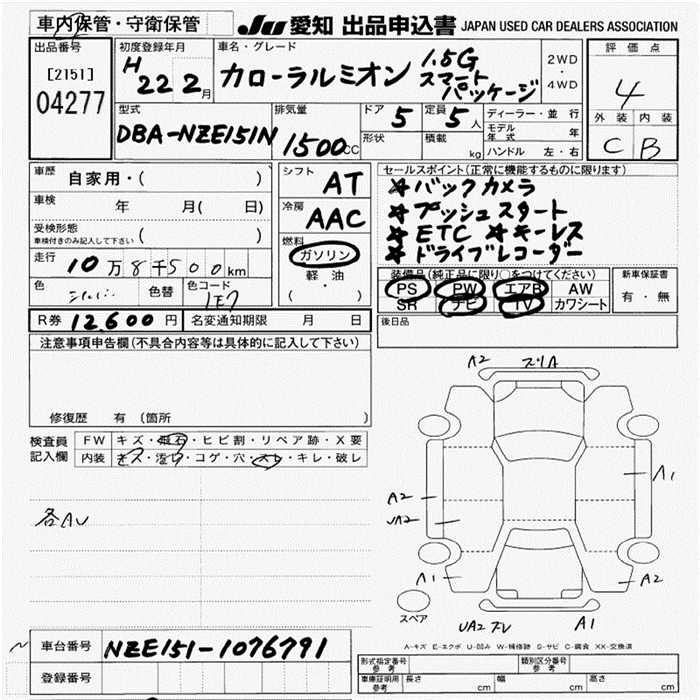 車内保管・守衛保管
JU 愛知 出品申込書 JAPAN USED CAR DEALERS ASSOCIATION
出品番号
[2151]
04277
初度登録年月
H 22 2月
車名・グレード
カローラルミオン 1.5G
スマート
パッケージ
2WD
・
4WD
評価点
4
外装 内装
C B
型式
DBA-NZE151N
排気量
1500cc
ドア 5
形状
定員 5人
積載 kg
ディーラー・並行
モデル年式 年
ハンドル 左・右
車歴 自家用・( )
車検 年 月( 日)
受検形態
車検付きのみ記入して下さい ( )
走行 10万8千500km
色 シルバー 色替 色コード 1E7
シフト AT
冷房 AAC
燃料
ガソリン
軽・油
( ・ )
セールスポイント(正常に機能するものに限ります)
☆バックカメラ
☆プッシュスタート
☆ETC ☆キーレス
☆ドライブレコーダー
装備品(純正品に限り○をつけてください)
PS PW エアB AW
SR ナビ TV カワシート
新車保証書
有・無
R券 12,600円 名変通知期限 月 日
後日品
注意事項申告欄(不具合内容等は具体的に記入して下さい)
修復歴 有 (箇所 )
検査員
記入欄
FW キズ・飛石・ヒビ割・リペア跡・X要
内装 キズ・汚れ・コゲ・穴・スレ・キレ・破レ
各AU
A2 スリA
A2
UA2
A1
A1
A2
スペア
UA2 スレ A1
A-キズ E-エクボ U-凹み W-補修跡 S-サビ C-腐食 XX-交換済
車台番号 NZE151-1076791
登録番号
形式指定番号
参考
類別区分番号
参考
車庫証明用
参考
長さ cm 幅 cm 高さ cm